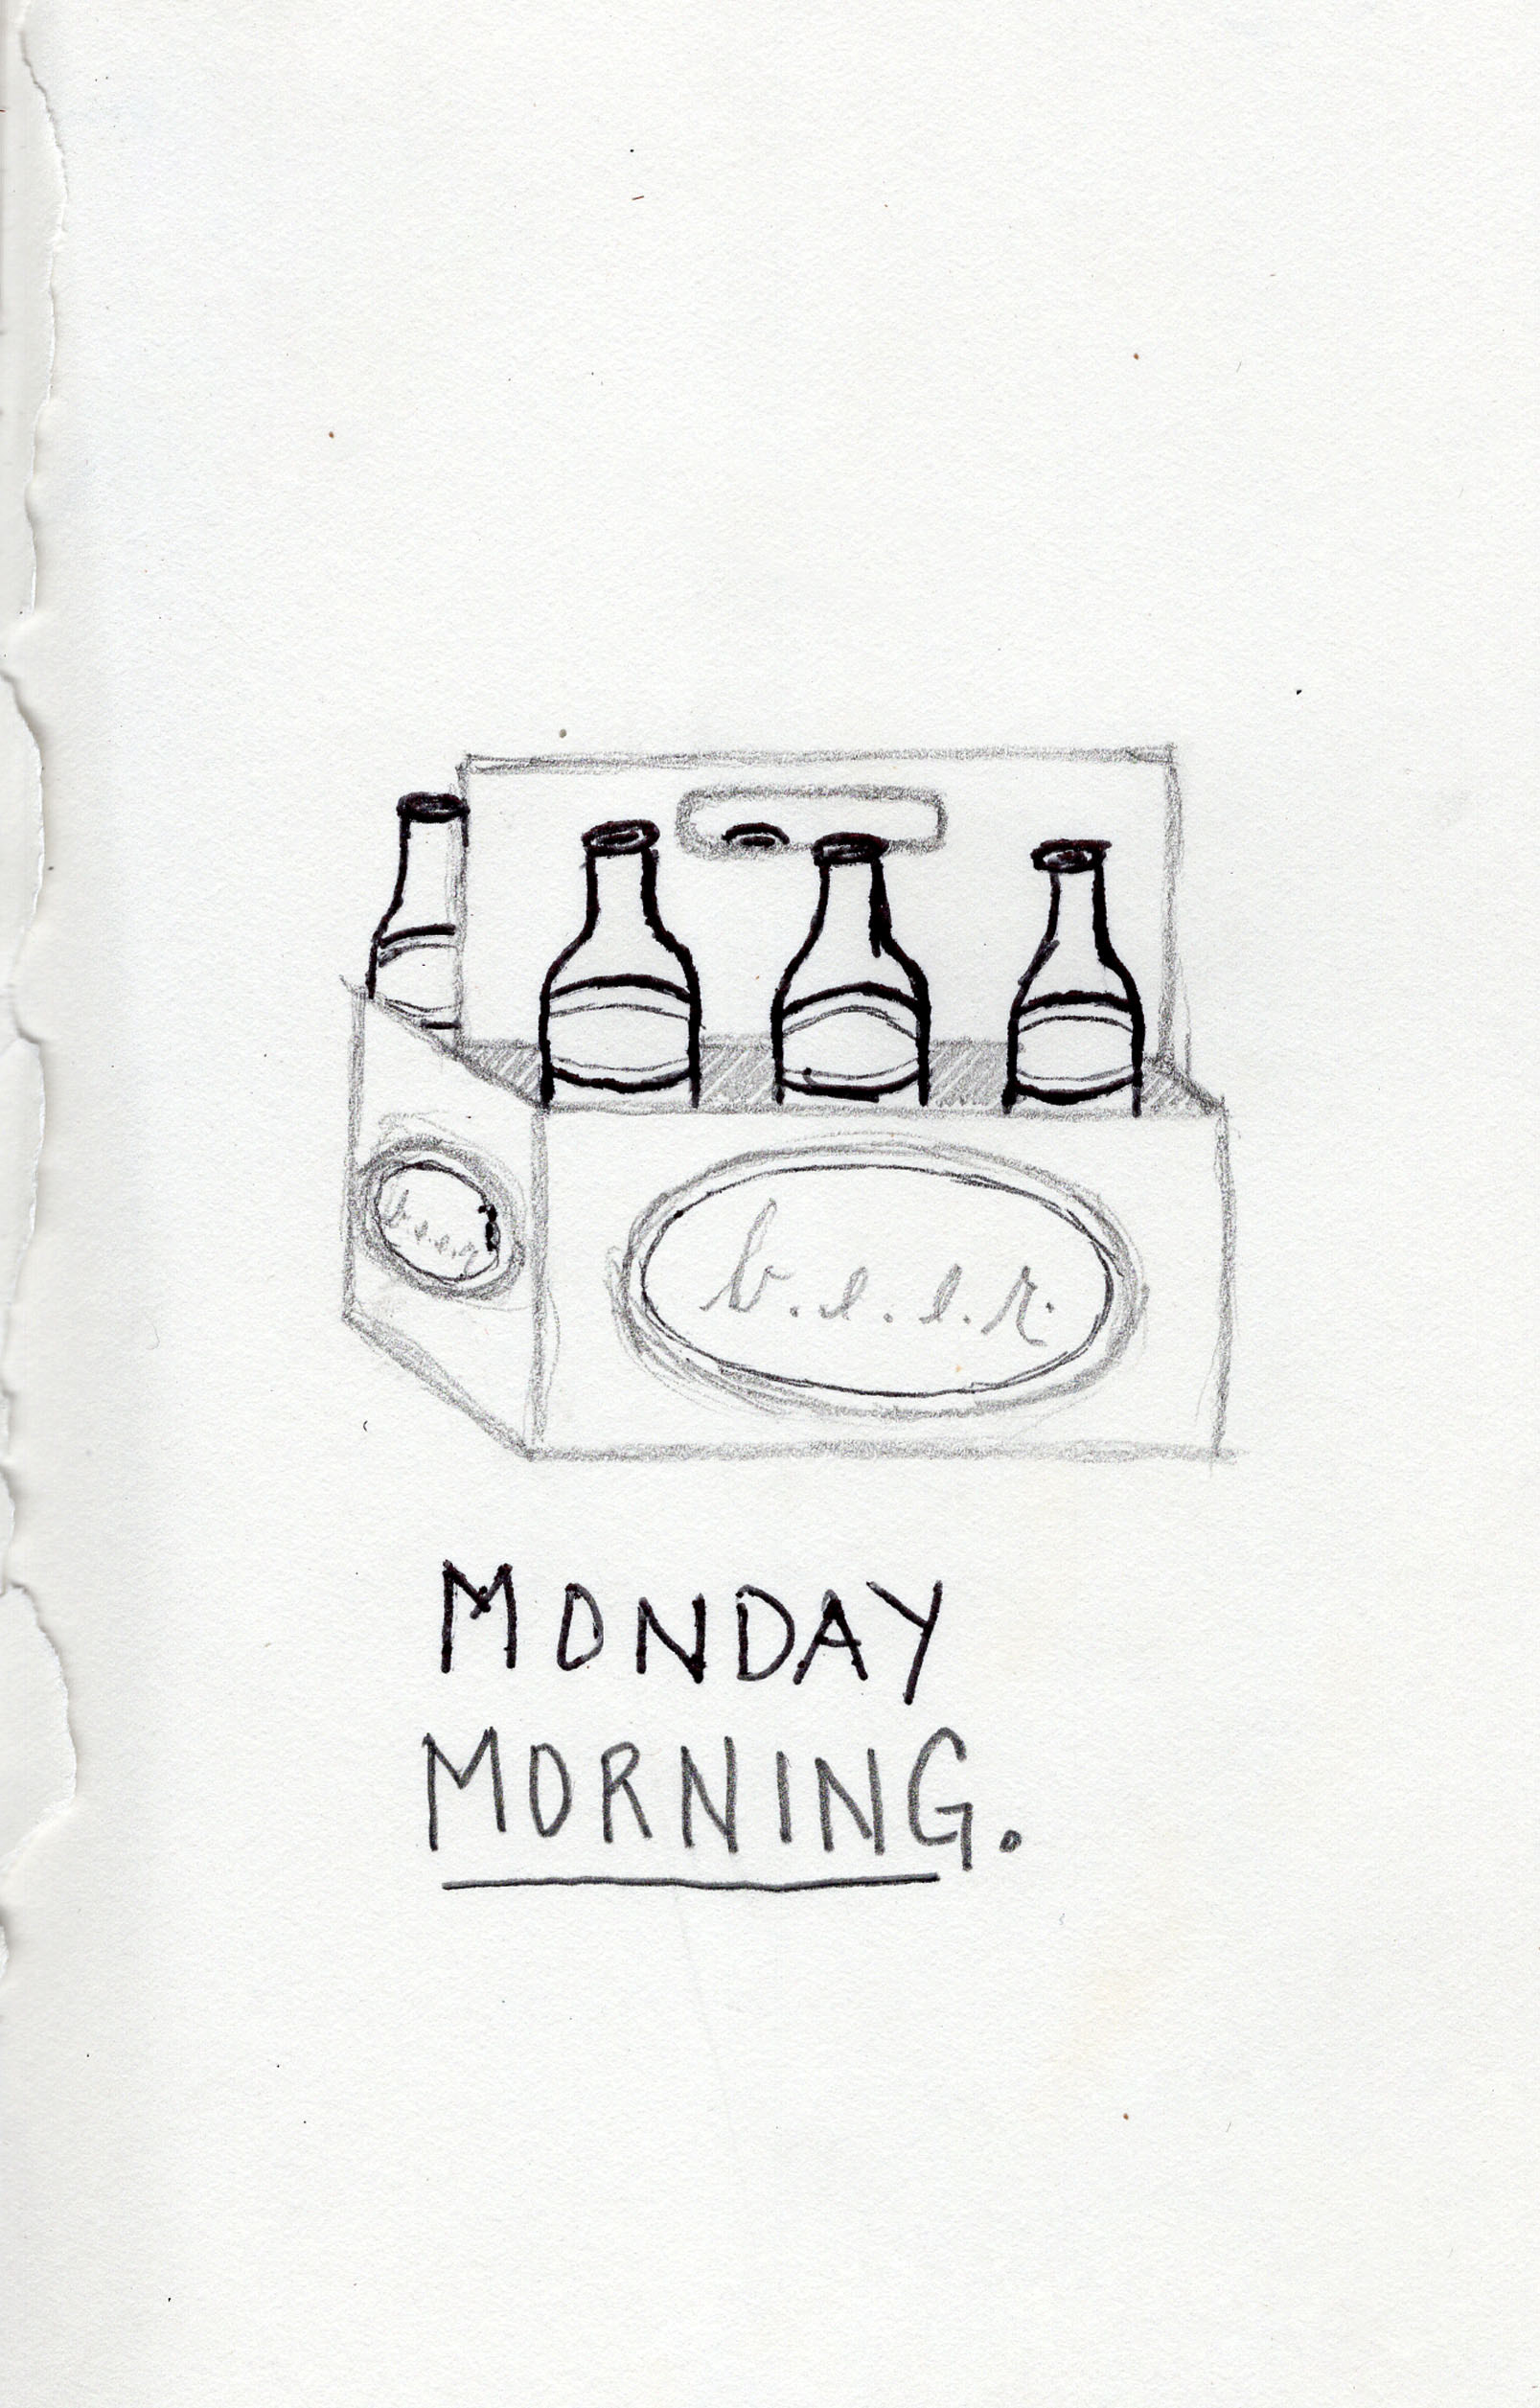 b.e.e.r.
b.e.e.r
MONDAY
MORNING.